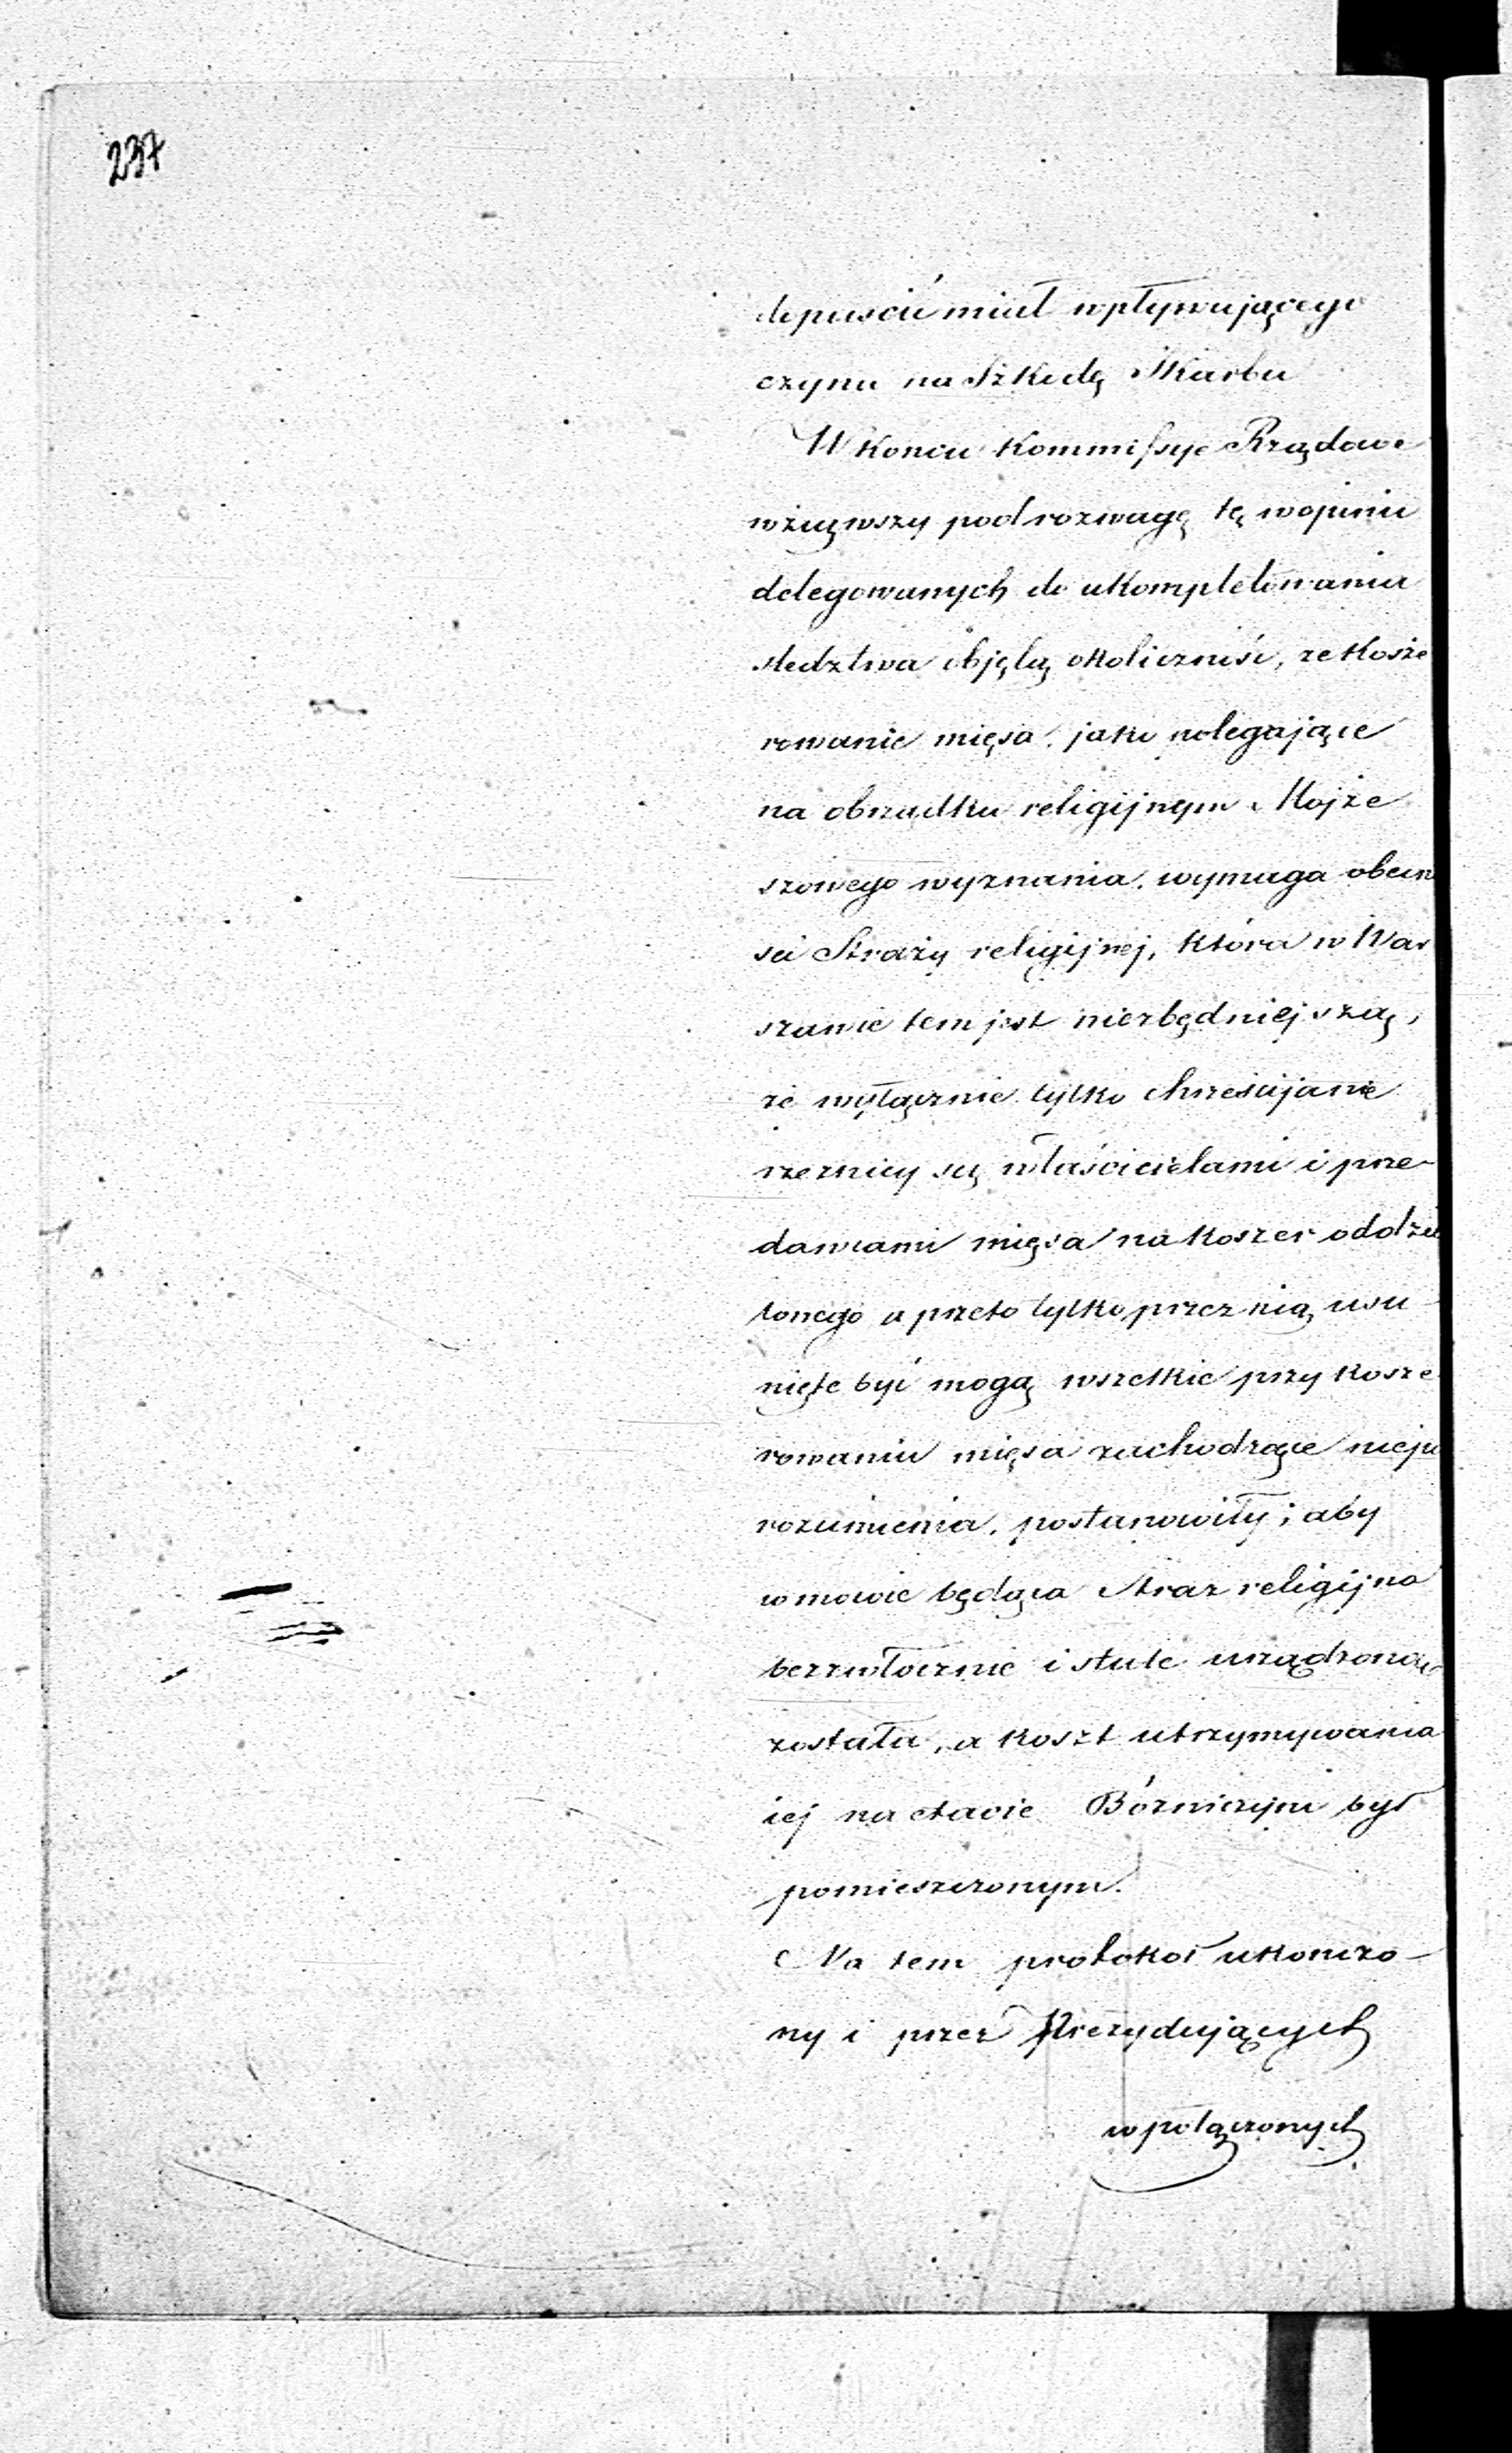 237
dopuścić miał wpływującego
czynu na Szkodę Skarbu
W końcu Kommissye Rządowe
wziąwszy pod rozwagę tę w opinii
delegowanych do ukompletowania
śledztwa objętą okoliczność, że Kosze
rowanie mięsa, jako polegające
na obrządku religijnym Mojże
szowego wyznania, wymaga obecno
ści Straży religijnej, która w War
szawie tem jest niezbędniejszą,
że wyłącznie tylko chrześcijanie
rzeźnicy są właścicielami i prze-
dawcami mięsa na koszer oddzie
lonego a przeto tylko przez nią usu-
nięte być mogą wszelkie przy kosze
rowaniu mięsa zachodzące niepo
rozumienia, postanowiły; aby
w mowie będąca Straż religijna
bezzwłocznie i stale urządzoną
została, a koszt utrzymywania
iej na etacie Bóżniczym był
pomieszczonym.
Na tem protokół ukończo-
ny i przez Prezydujących
w połączonych